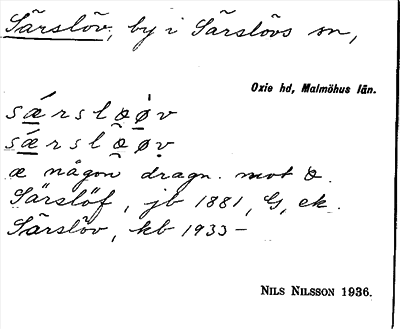 Särslöv, by i Särslövs sn,
Oxie hd, Malmöhus län.
særslòv
særsløv
æ någon dragn. mot a.
Särslöf, jb 1881, G, ek.
Särslöv, kb 1933-
NILS NILSSON 1936.